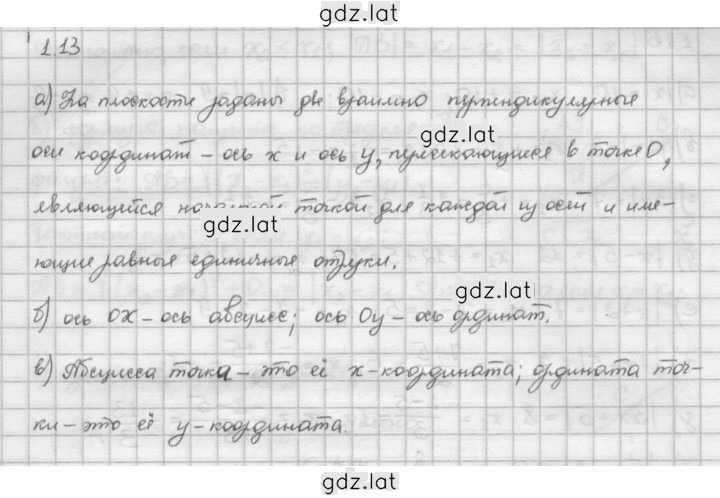 gdz.lat
1.13
а) На плоскости заданы две взаимно перпендикулярные
gdz.lat
оси координат – ось x и ось y, пересекающиеся в точке O,
являющейся точкой для каждой из осей и име-
gdz.lat
ющие равные единичные отрезки.
gdz.lat
б) ось Ox – ось абсцисс; ось Oy – ось ординат.
в) Абсцисса точка – это её x-координата; ордината точ-
ки – это её y-координата.
gdz.lat